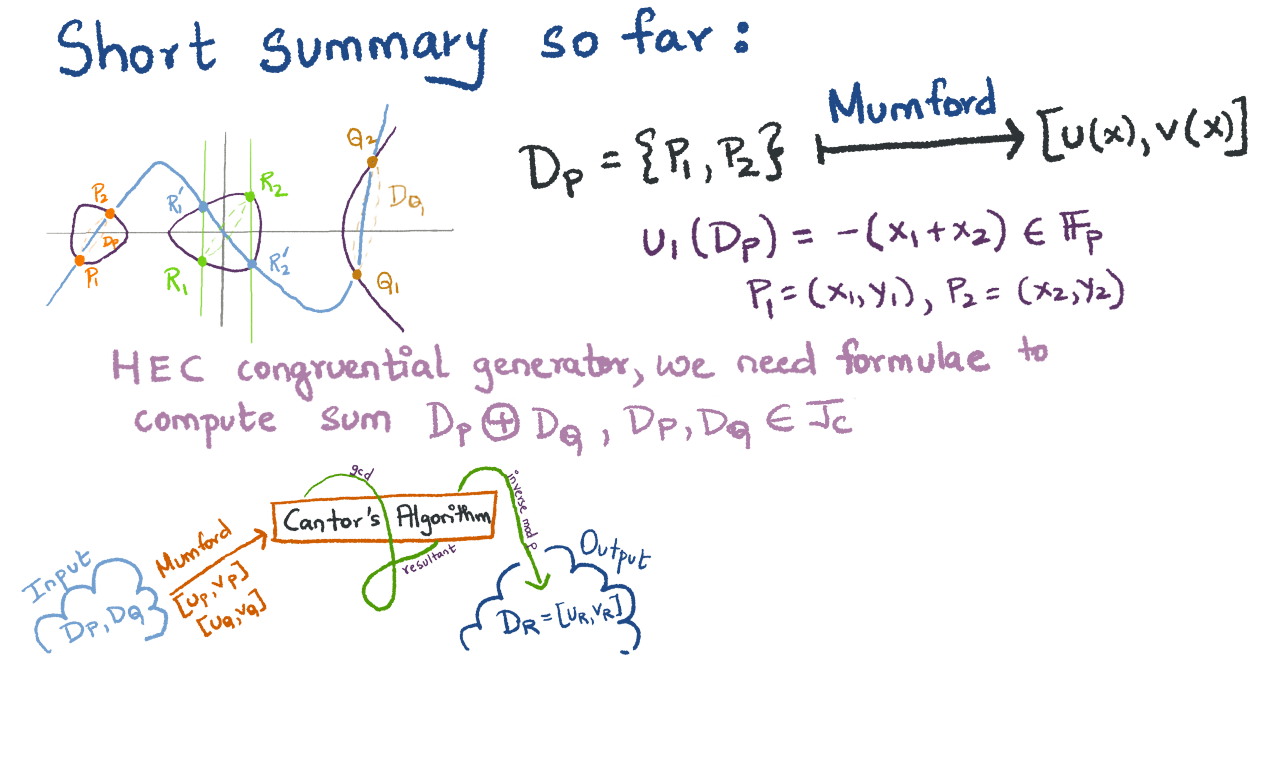 Short summary so far:
Mumford
D_P = {P_1, P_2} ⟼ [u(x), v(x)]
u_1(D_P) = -(x_1+x_2) ∈ 𝔽_p
P_1 = (x_1, y_1), P_2 = (x_2, y_2)
Q_2
P_2
R_1'
R_2
D_{Q_1}
D_P
P_1
R_1
R_2'
Q_1
HEC congruential generator, we need formulae to
compute sum D_P ⊕ D_Q, D_P, D_Q ∈ J_C
gcd
inverse mod p
Cantor's Algorithm
resultant
Input
D_P, D_Q
Mumford
[u_P, v_P]
[u_Q, v_Q]
Output
D_R = [u_R, v_R]